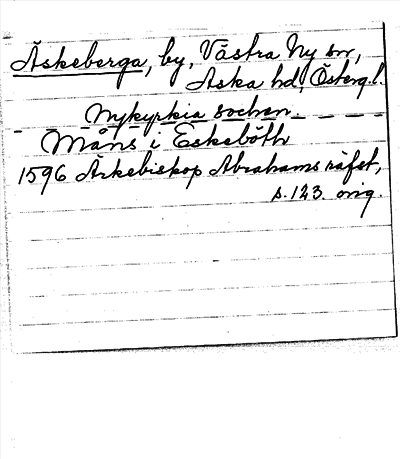 Äskeberga, by, Västra Ny sn,
Aska hd, Österg.l.
Nykyrkia sochen.
Måns i Eskebôth
1596 Ärkebiskop Abrahams räfst,
s. 123. orig.